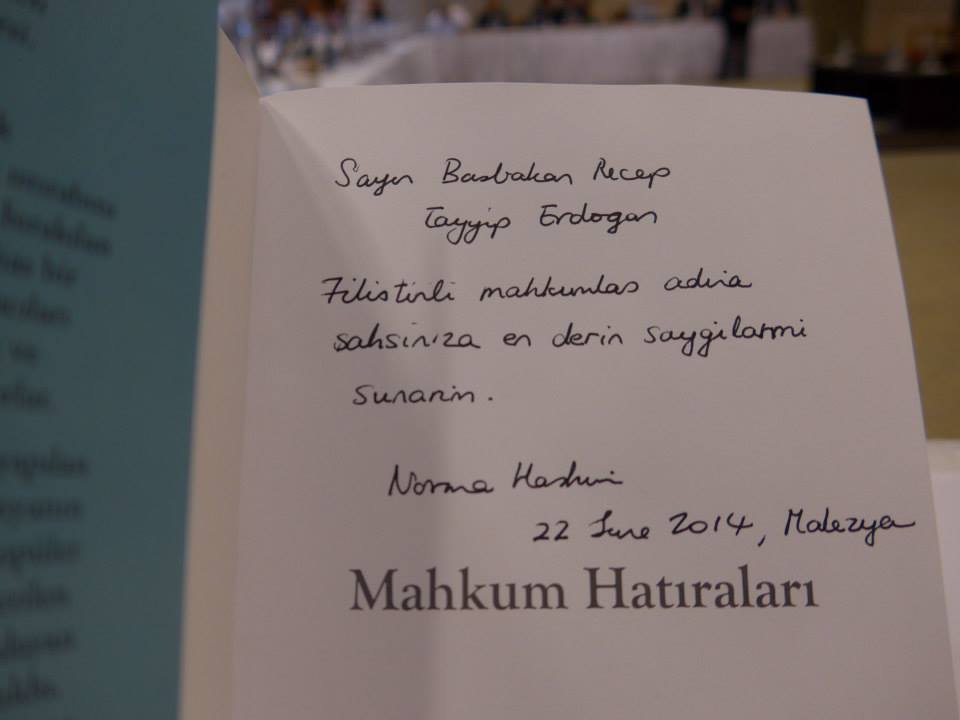 Sayın Basbakan Recep
Tayyip Erdogan
Filistinli mahkumlas adina
sahsiniza en derin saygilarmi
sunarin.
Norma Hashim
22 June 2014, Malezya
Mahkum Hatıraları